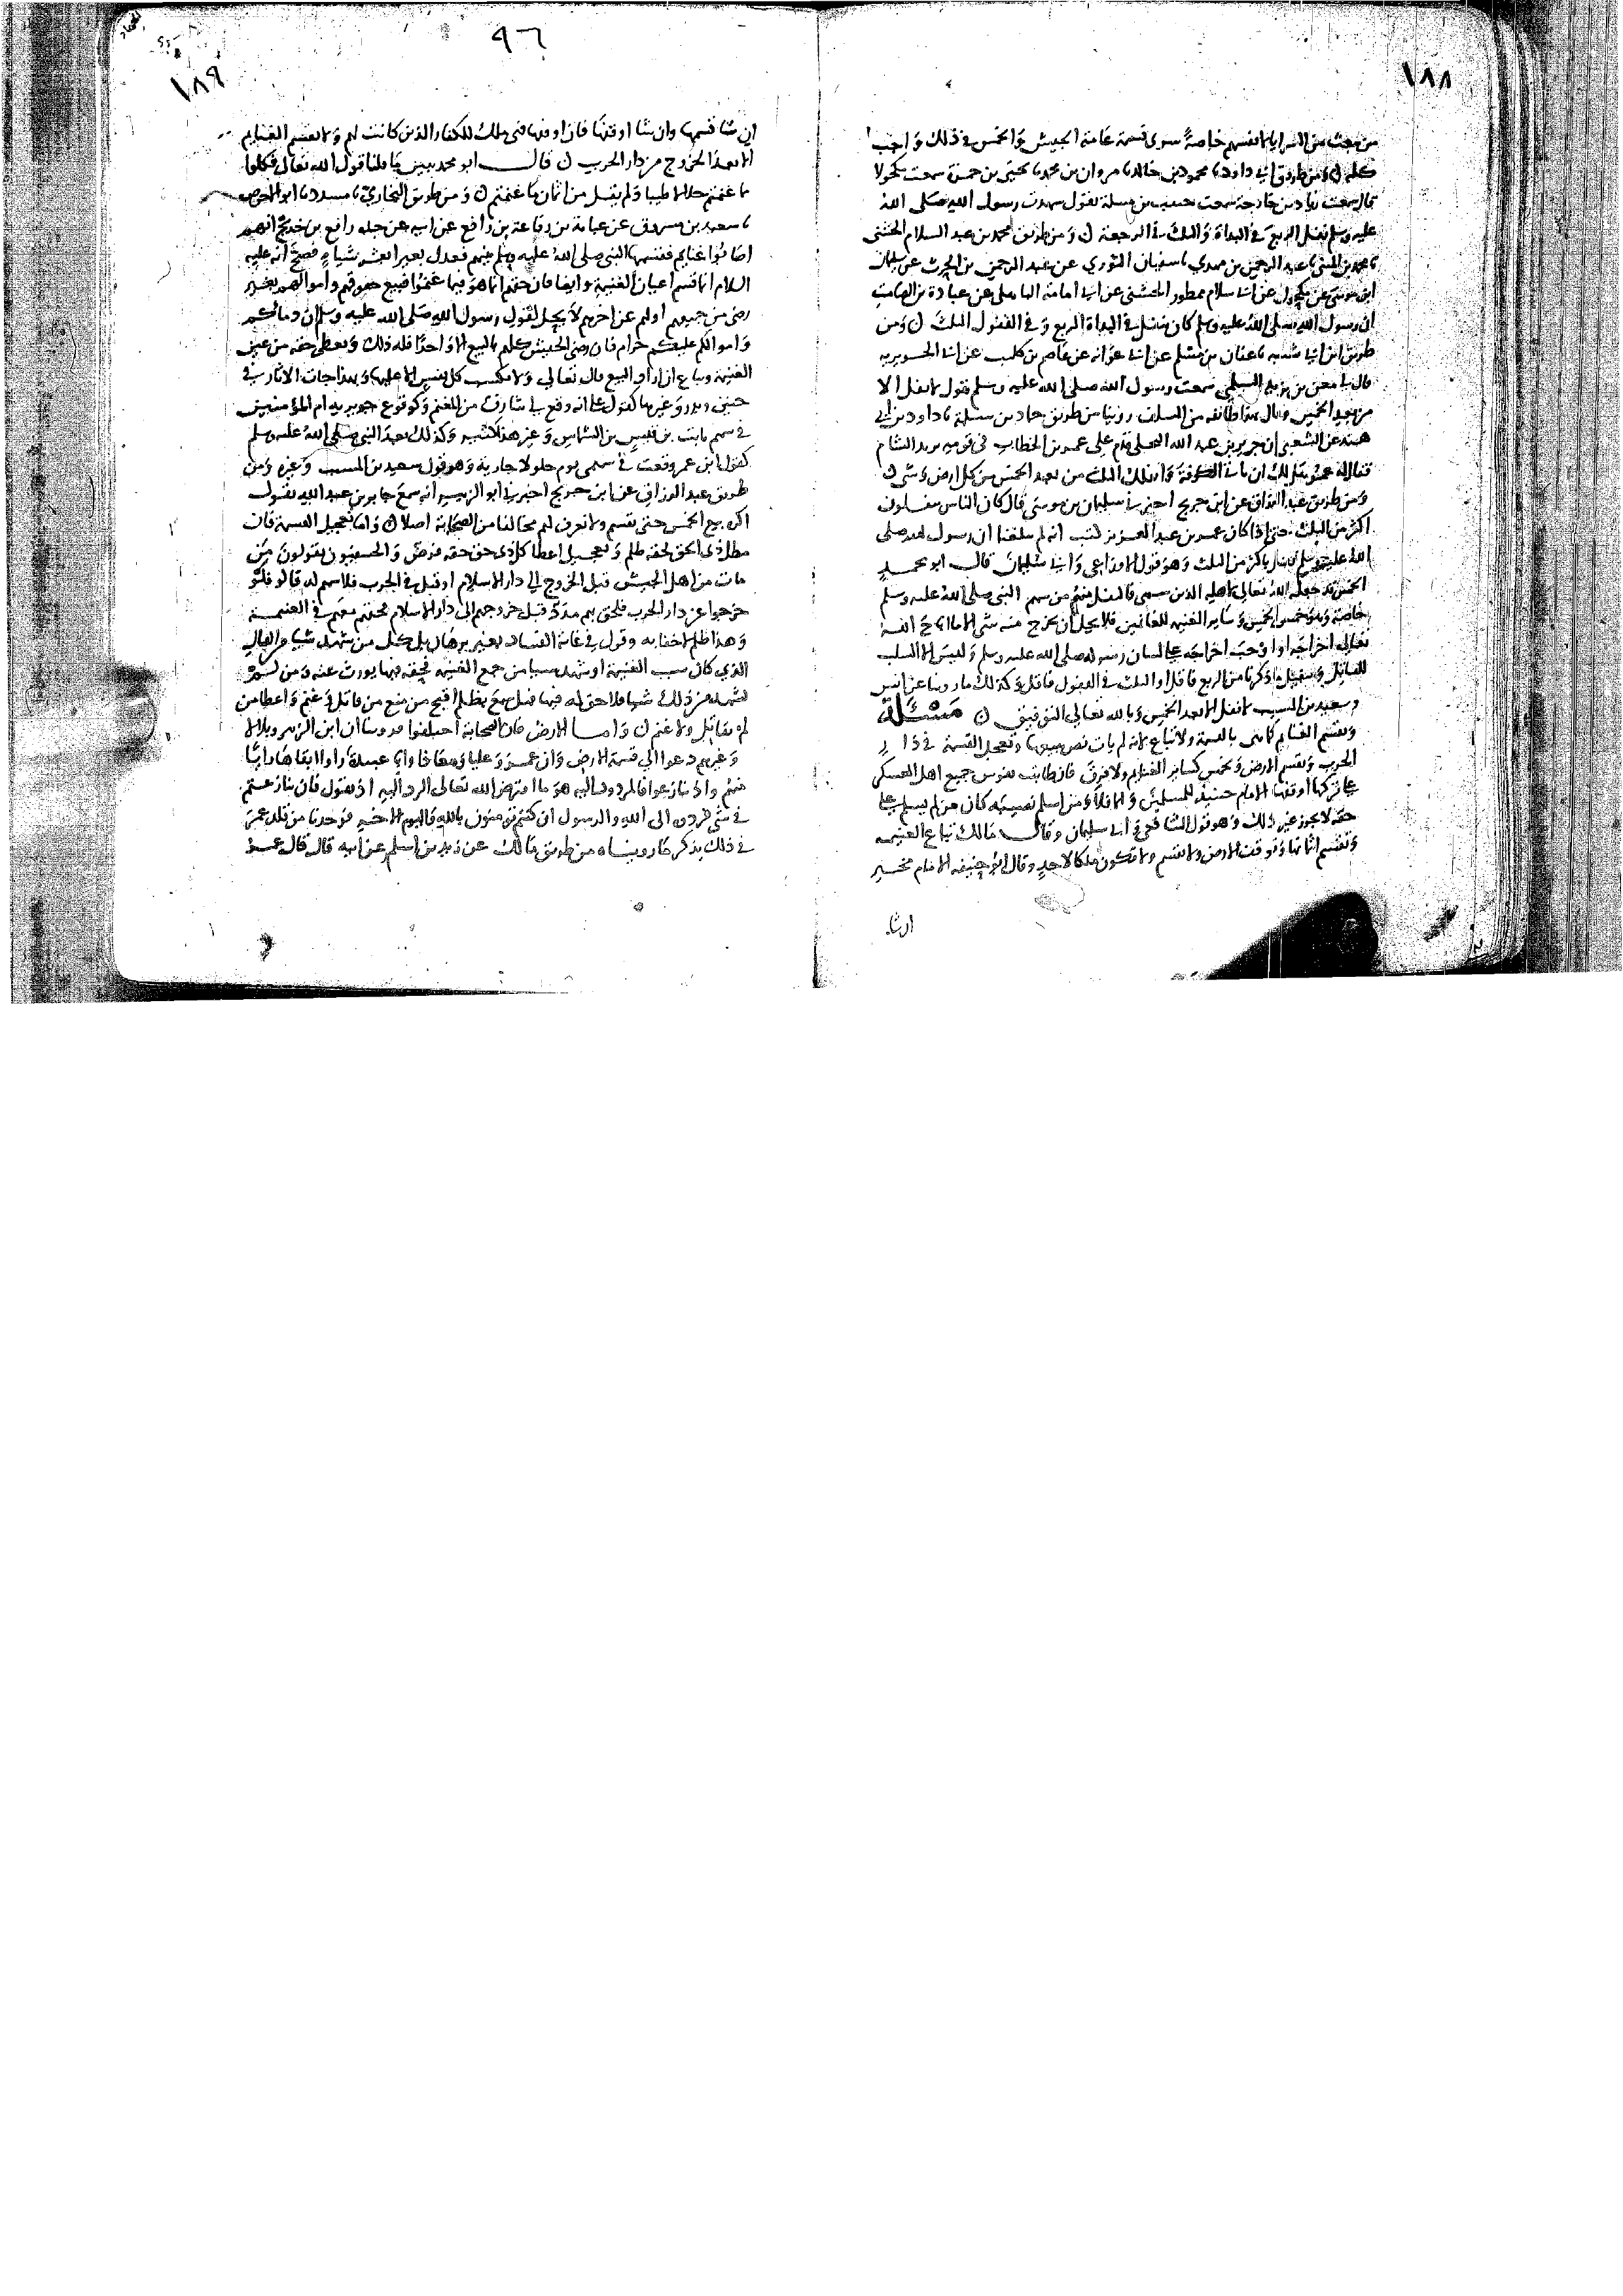 ١٨٨
من بعث من السرايا لانفسهم خاصة سوى قسمة عامة الجيش والخمس في ذلك واجب
كله ن ومن طريق ابي داود نا محمود بن خالد نا مروان بن محمد نا يحيى بن حمزة سمعت مكحولا
قال سمعت زياد بن جارية سمعت حبيب بن مسلمة يقول شهدت رسول الله صلى الله
عليه وسلم نفل الربع في البداة والثلث في الرجعة ن ومن طريق محمد بن عبد السلام الخشني
نا محمد بن المثنى نا عبد الرحمن بن مهدي نا سفيان الثوري عن عبد الرحمن بن الحرث عن سليمان
ابن موسى عن مكحول عن ابي سلام ممطور الحبشي عن ابي امامة الباهلي عن عبادة بن الصامت
ان رسول الله صلى الله عليه وسلم كان ينفل في البداة الربع وفي القفول الثلث ن ومن
طريق ابن ابي شيبه نا عفان بن مسلم عن ابي عوانه عن عاصم بن كليب عن ابي الجويريه
قال لي معن بن يزيد السلمي سمعت رسول الله صلى الله عليه وسلم يقول لا نفل الا
من بعد الخمس وقال بهذا طائفه من السلف روينا من طريق حماد بن سلمة نا داود بن ابي
هند عن الشعبي ان جرير بن عبد الله البجلي قدم على عمر بن الخطاب في قومه يريد الشام
فقال له عمر هل لك ان تاتي الكوفة وانفلك الثلث من بعد الخمس من كل ارض وشي ن
ومن طريق عبد الرزاق عن ابن جريج اخبرني سليمان بن موسى قال كان الناس ينفلون
اكثر من الثلث حتى اذا كان عمر بن عبد العزيز كتب انه لم يبلغنا ان رسول الله صلى
الله عليه وسلم نفل باكثر من الثلث وهو قول الاوزاعي وابي سليمان قال ابو محمد
الخمس قد جعله الله تعالى لاهله الذين سمى فالنفل منه من سهم النبي صلى الله عليه وسلم
خاصة وهو خمس الخمس وساير الغنيمه للغانمين فلا يحل ان يخرج منه شي الا ما اباح الله
تعالى اخراجه او اوجب اخراجه على لسان رسوله صلى الله عليه وسلم وليس الا السلب
للقاتل وتنفيل ما ذكرنا من الربع فاقل او الثلث في القفول فاقل وكذلك ما روينا عن انس
وسعيد بن المسيب لا نفل الا بعد الخمس وبالله تعالى التوفيق ن مسئلة
وتقسم الغنايم كما هي بالقيمة ولا تباع لانه لم يات نص ببيعها وتعجل القسمة في دار
الحرب وتقسم الارض وتخمس كساير الغنايم ولا فرق فان طابت نفوس جميع اهل العسكر
على تركها اوقفها الامام حينيذ للمسلمين والا فلا ومن اسلم نصيبه كان من لم يسلم على
حقه لا يجوز غير ذلك وهو قول الشافعي وابي سليمان وقال مالك تباع الغنيمه
وتقسم اثمانها وتوقف الارض ولا تقسم ولا تكون ملكا لاحد وقال ابو حنيفه الامام مخير
ان شا
٩٦
١٨٩
ان شا قسمها وان شا اوقفها فان اوقفها فهي ملك للكفار الذين كانت لهم ولا تقسم الغنايم
الا بعد الخروج من دار الحرب ن قال ابو محمد بيبين ما قلنا قول الله تعالى فكلوا
مما غنمتم حلالا طيبا ولم يقل من اثمان ما غنمتم ن ومن طريق البخاري نا مسدد نا ابو الاحوص
نا سعيد بن مسروق عن عباية بن رفاعة بن رافع عن ابيه عن جده رافع بن خديج انهم
اصابوا غنايم فقسمها النبي صلى الله عليه وسلم بينهم فعدل بعيرا بعشر شياه فصح انه عليه
السلام انما قسم اعيان الغنيمة وايضا فان حقهم انما هو فيما غنموا فبيع حقوقهم واموالهم بغير
رضى من جميعهم اولهم عن اخرهم لا يحل لقول رسول الله صلى الله عليه وسلم ان دماءكم
واموالكم عليكم حرام فان رضي الجيش كلهم بالبيع الا واحدا فله ذلك ويعطى حقه من عين
الغنيمة ويباع ان اراد البيع قال تعالى ولا تكسب كل نفس الا عليها وبهذا جات الاثار في
حنين وبدر وغيرهما كقول علي انه وقع لي شارف من المغنم وكوقوع جويريه ام المؤمنين
في سهم ثابت بن قيس بن الشماس وغير هذا كثير وكذلك بعد النبي صلى الله عليه وسلم
كقول ابن عمر وقعت في سهمي يوم جلولا جارية وهو قول سعيد بن المسيب وغيره ومن
طريق عبد الرزاق عن ابن جريج اخبرني ابو الزبير انه سمع جابر بن عبد الله يقول
اكره بيع الخمس حتى يقسم ولا نعرف لهم مخالفا من الصحابة اصلا ن واما تعجيل القسمة فان
مطل ذي الحق لحقه ظلم وتعجيل اعطا كل ذي حق حقه فرض والحنيفيون يقولون من
مات من اهل الجيش قبل الخروج الى دار الاسلام او قتل في الحرب فلا سهم له قالوا فلو
خرجوا عن دار الحرب فلحق بهم مدد قبل خروجهم الى دار الاسلام فحقهم معهم في الغنيمة
وهذا ظلم لا خفا به وقول في غاية الفساد بغير برهان بل كل من شهد شيا من القتال
الذي كان سبب الغنيمة او شهد شيا من جمع الغنيمه فحقه فيها يورث عنه ومن لم
يشهد من ذلك شيا فلا حق له فيها فهل سمع بظلم اقبح من منع من قاتل وغنم واعطا من
لم يقاتل ولا غنم ن واما الارض فان الصحابة اختلفوا فروينا ان ابن الزبير وبلالا
وغيرهم دعوا الى قسمة الارض وان عمر وعليا ومعاذا وابا عبيدة راوا ابقاها رايا
منهم واذ تنازعوا فالمردود اليه هو ما افترض الله تعالى الرد اليه اذ يقول فان تنازعتم
في شي فردوه الى الله والرسول ان كنتم تؤمنون بالله واليوم الاخر فوجدنا من قلد عمر
في ذلك يذكر ما رويناه من طريق مالك عن زيد بن اسلم عن ابيه قال قال عمر